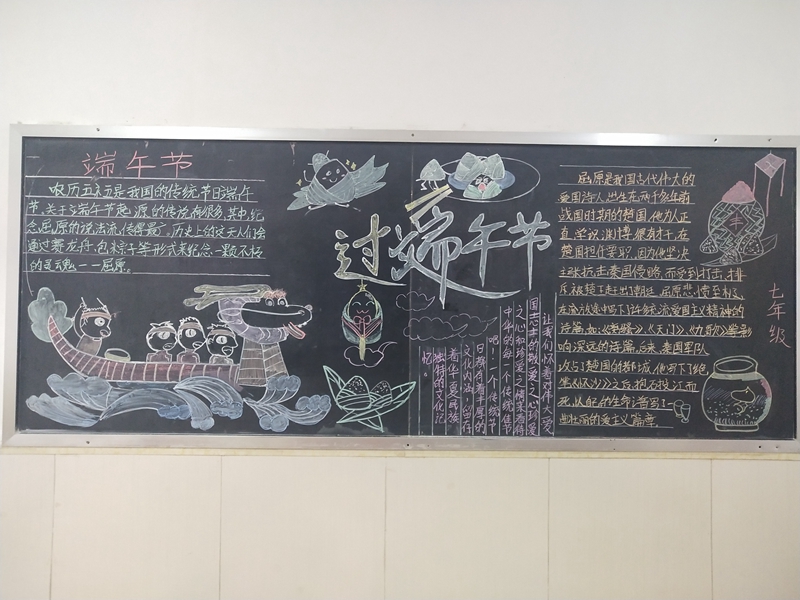 端午节
农历五月初五是我国的传统节日端午
节,关于端午节起源的传说有很多,其中,纪
念屈原的说法流传最广,历史上的这天人们会
通过赛龙舟,包粽子等形式来纪念一颗不朽
的灵魂——屈原。
过端午节
让我们怀着对伟大爱
国志士的敬爱之
之心和珍爱之情来对待
中华的每一个传统佳节
吧!一个传统节
日携的着丰厚的
文化内涵,留存
着华夏民族
独特的文化记
忆。
屈原是我国古代伟大的
爱国诗人,出生在两千多年前
战国时期的楚国,他为人正
直,学识渊博,很有才干,在
楚国担任要职,因为他坚决
主张抗击秦国侵略,而受到打击,排
斥被楚王赶出了朝廷,屈原悲愤至极,
在流放途中写下许多
诗篇,如:《离骚》、《天门》、《九歌》等影
响深远的诗篇,后来,秦国军队
攻占了楚国的都城,他写下了绝
笔《怀沙》之后,抱石投江而
死,以自己的生命谱写了一
曲壮丽的爱主义篇章。
七年级